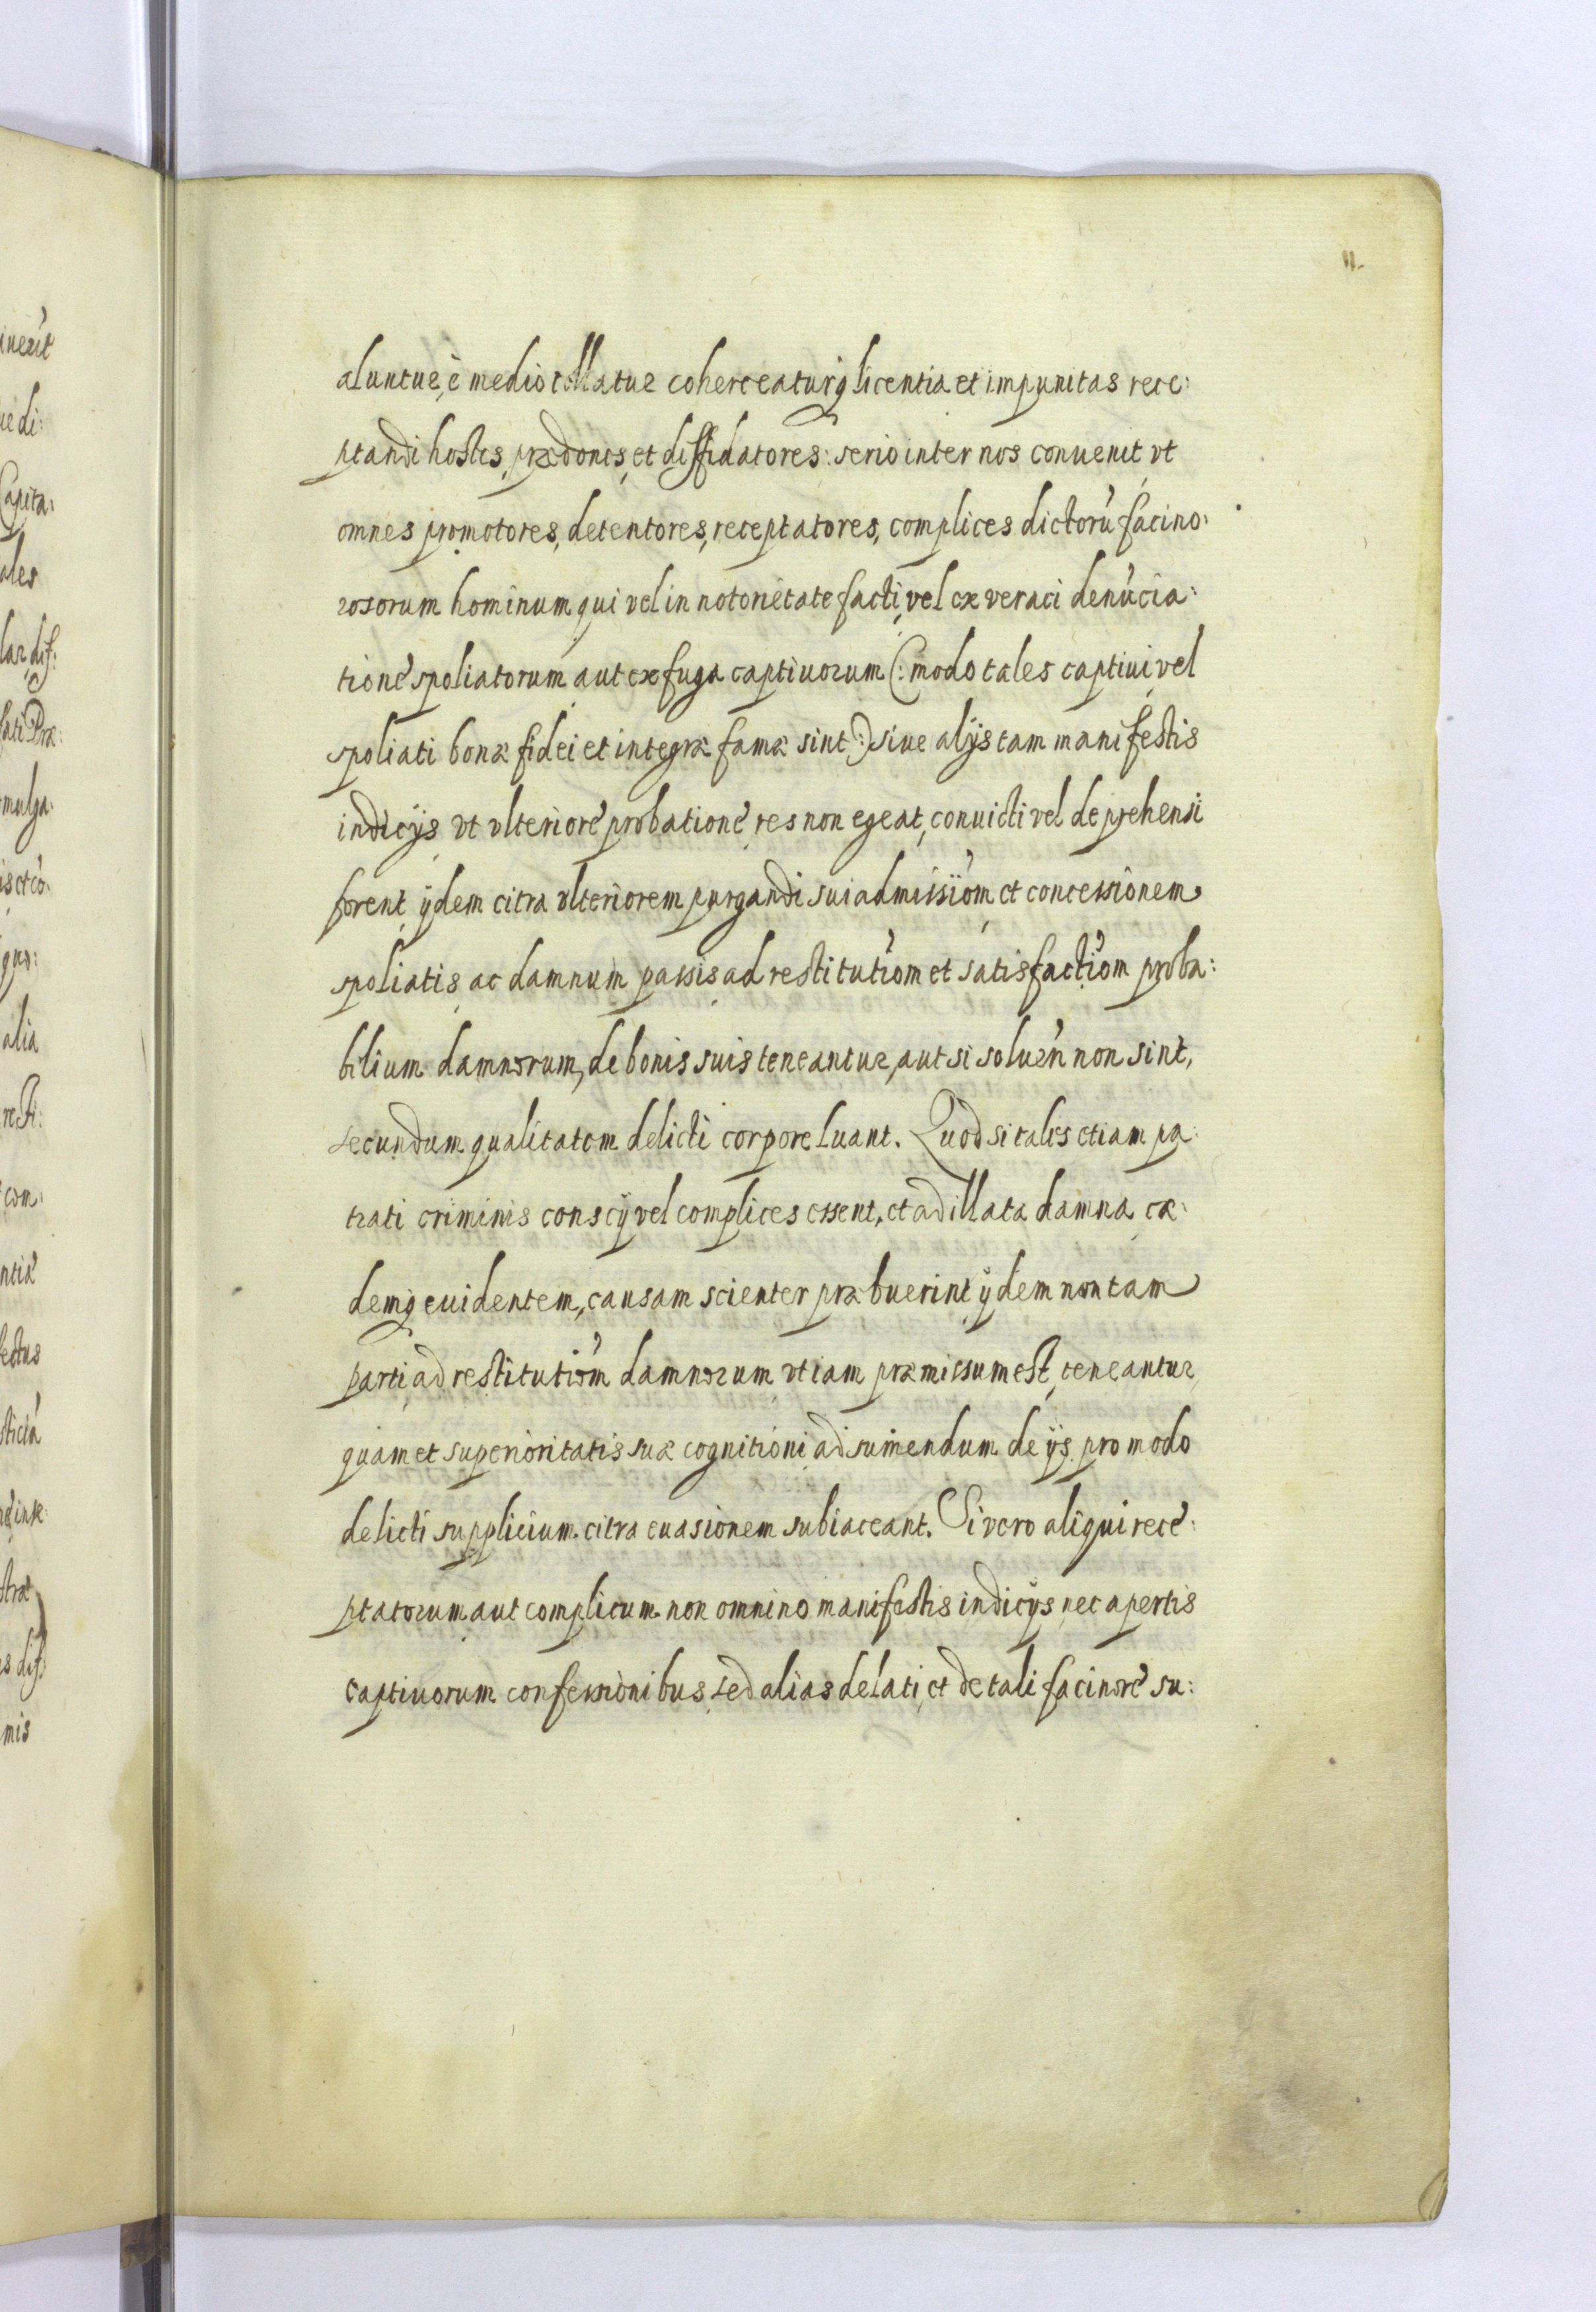 11.
aluntur, è medio tollatur coherceaturq; licentia et impunitas rece:
ptandi hostes, prædones, et diffidatores: serio inter nos conuenit, vt
omnes promotores, detentores, receptatores, complices dictorū facino:
rosorum hominum, qui vel in notorietate facti, vel ex veraci denūcia:
tione spoliatorum, aut ex fuga captiuorum (: modo tales captiui, vel
spoliati bonæ fidei et integræ famæ sint :) siue alijs tam manifestis
indicijs vt vlteriore probatione, res non egeat, conuicti vel deprehensi
forent, ijdem citra vlteriorem purgandi sui admissiōm et concessionem
spoliatis, ac damnum passis ad restitutiōm et satisfactiōm proba:
bilium damnorum, de bonis suis teneantur, aut si soluēn non sint,
secundum qualitatem delicti corpore luant. Quod si tales etiam pa:
trati criminis conscij vel complices essent, et ad illata damna, ex:
demq; euidentem, causam scienter præbuerint, ijdem non tam
parti, ad restitutiōm damnorum vt iam præmissum est, teneantur,
quam et superioritatis suæ cognitioni, ad sumendum de ijs pro modo
delicti supplicium, citra euasionem subiaceant. Si vero aliqui rece:
ptatorum, aut complicum non omnino manifestis indicijs, nec apertis
captiuorum confessionibus, sed alias delati, et de tali facinore su: